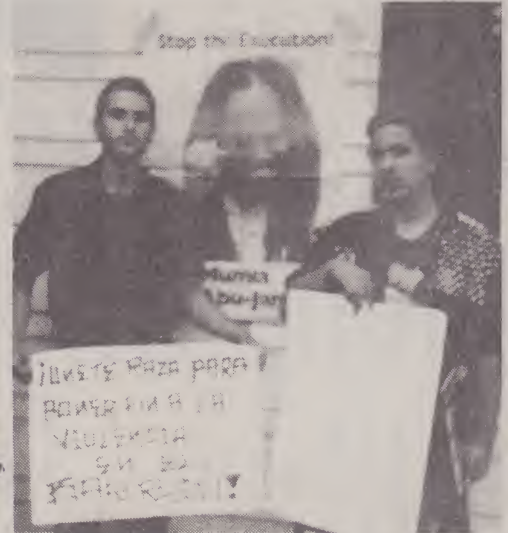 Stop the Execution!
Mumia
Abu-Jam
¡UNETE RAZA PARA
PONER FIN A LA
VIOLENCIA
EN EL